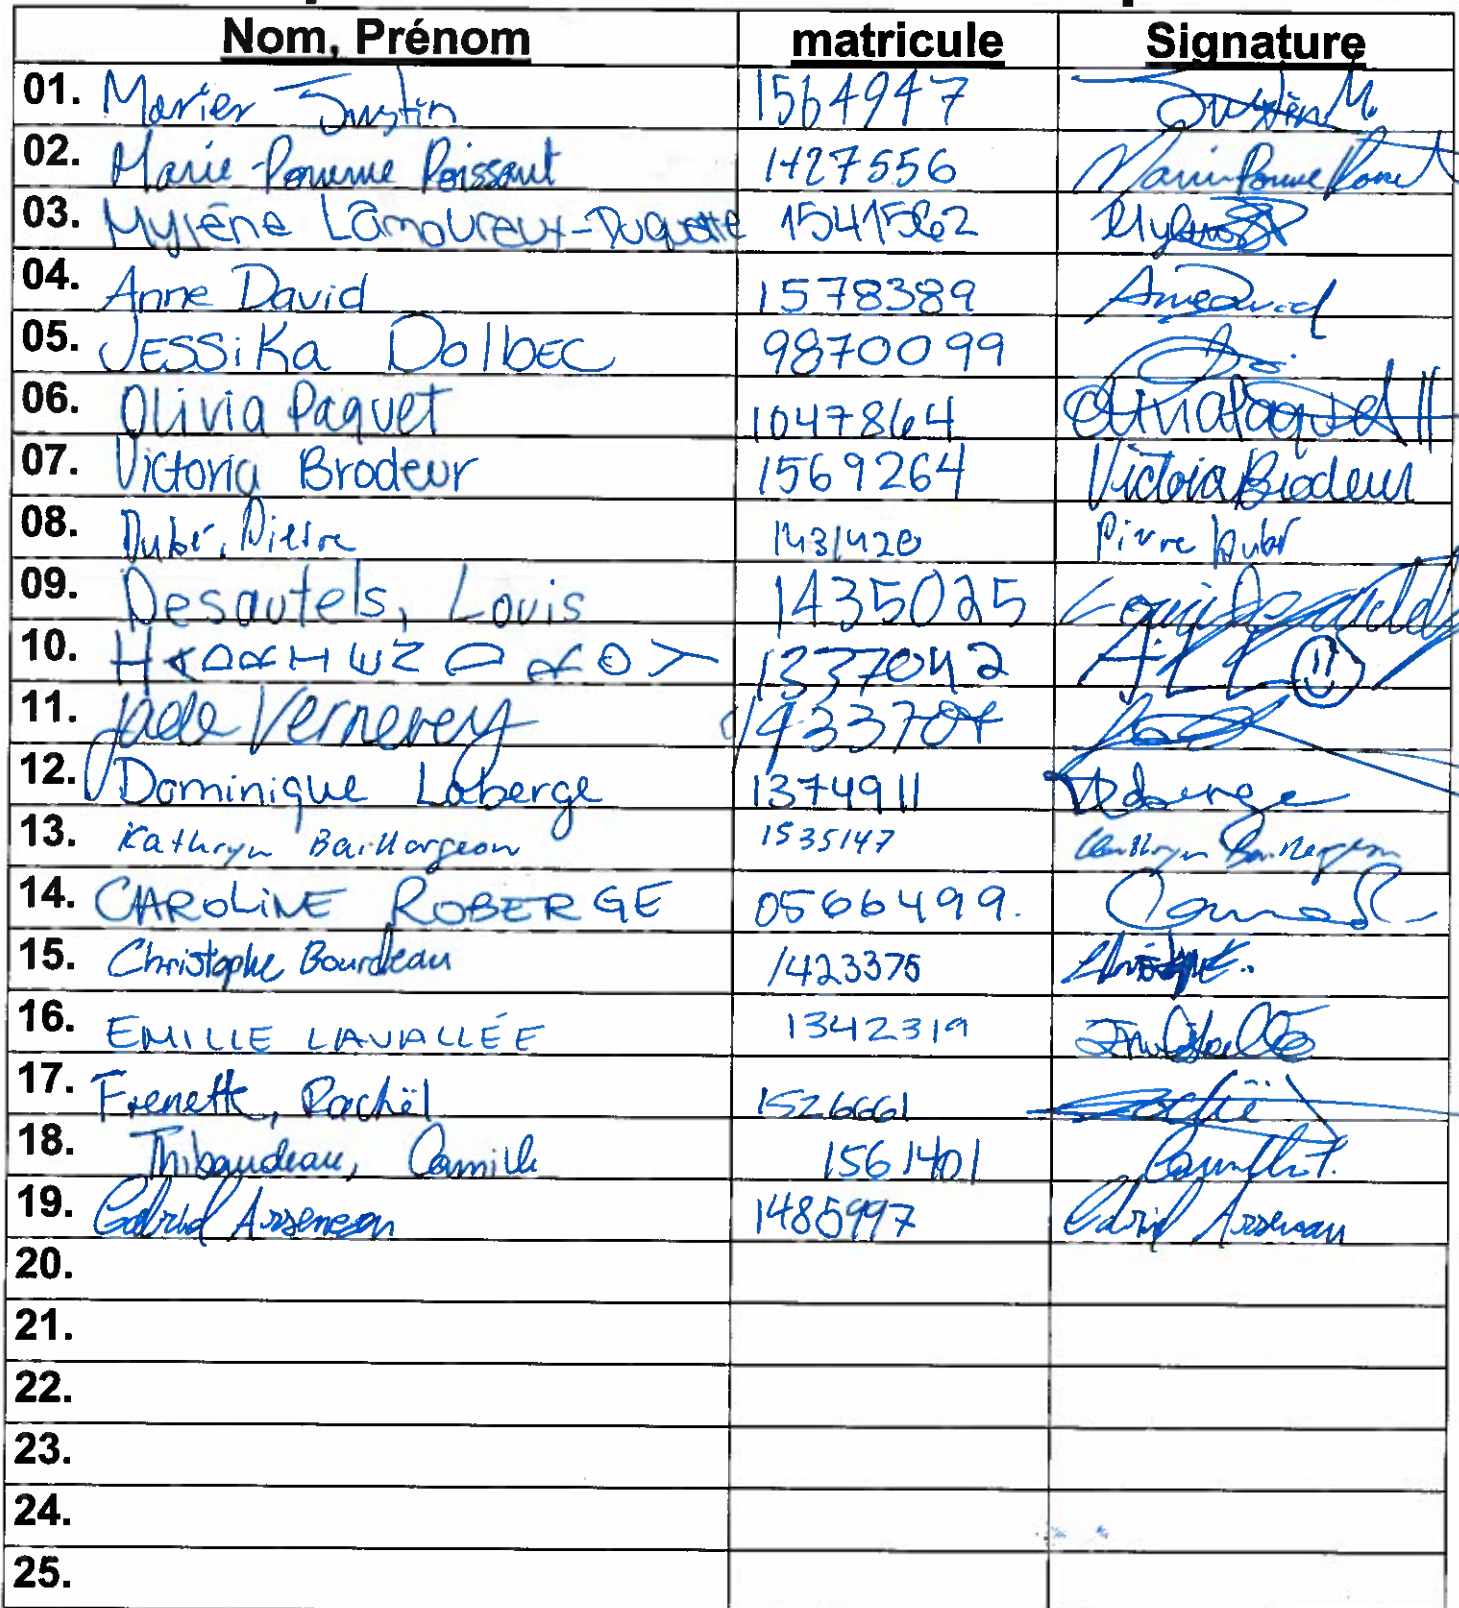 Nom, Prénom matricule Signature
01. Marier Justin 1564947 Justin M.
02. Marie-Pomme Poissant 1427556
03. Mylène Lamoureux-Duquette 1541562
04. Anne David 1578389 Anne David
05. JESSiKa DolbEC 9870099
06. Olivia Paquet 1047864 Olivia Paquet
07. Victoria Brodeur 1569264 Victoria Brodeur
08. Dubé, Pierre 1431420 Pierre Dubé
09. Desautels, Louis 1435025 Louis Desautels
10. 1337042
11. Jade Vernerey 1433704
12. Dominique Laberge 1374911 DLaberge
13. Kathryn Baillargeon 1535147 Kathryn Baillargeon
14. CAROLiNE ROBERGE 0566499.
15. Christophe Bourdeau 1423375
16. EMILIE LAVALLÉE 1342319
17. Frenette, Rachël 1526661
18. Thibaudeau, Camille 1561401 Camille T.
19. Gabriel Arseneau 1485997 Gabriel Arseneau
20.
21.
22.
23.
24.
25.